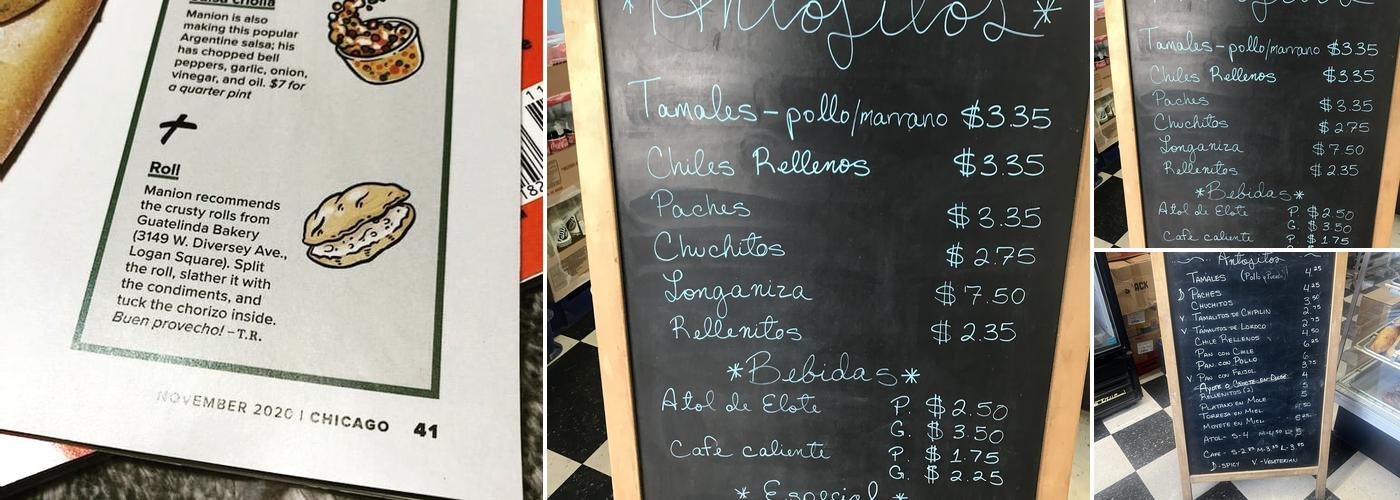 Salsa criolla
Manion is also
making this popular
Argentine salsa; his
has chopped bell
peppers, garlic, onion,
vinegar, and oil. $7 for
a quarter pint
+
Roll
Manion recommends
the crusty rolls from
Guatelinda Bakery
(3149 W. Diversey Ave.,
Logan Square). Split
the roll, slather it with
the condiments, and
tuck the chorizo inside.
Buen provecho! –T.R.
NOVEMBER 2020 | CHICAGO 41
*Antojitos*
Tamales - pollo/marrano $3.35
Chiles Rellenos $3.35
Paches $3.35
Chuchitos $2.75
Longaniza $7.50
Rellenitos $2.35
*Bebidas*
Atol de Elote P. $2.50
G. $3.50
Cafe caliente P. $1.75
G. $2.25
* Especial *
Tamales - pollo/marrano $3.35
Chiles Rellenos $3.35
Paches $3.35
Chuchitos $2.75
Longaniza $7.50
Rellenitos $2.35
*Bebidas*
Atol de Elote P. $2.50
G. $3.50
Cafe caliente P. $1.75
Antojitos
TAMALES (Pollo y Puerco) 4.25
PACHES 4.25
CHUCHITOS 3.50
V TAMALITOS DE CHIPILIN
V TAMALITOS DE LOROCO
CHILE RELLENOS
PAN CON CHILE
PAN CON POLLO
V PAN CON FRIJOL
RELLENITOS (2)
PLATANO EN MOLE
TORREJA EN MIEL
MOLLETE EN MIEL
ATOL - S-4
CAFE -
SPICY V - VEGETARIAN